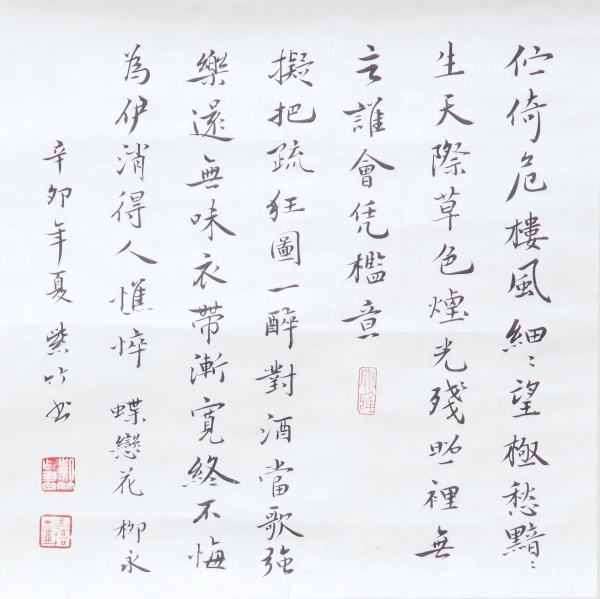 伫倚危樓風細〻望極愁黯〻
生天際草色煙光殘照裡無
言誰會凭檻意
擬把疏狂圖一醉對酒當歌強
樂還無味衣帶漸寬終不悔
為伊消得人憔悴 蝶戀花 柳永
辛卯年夏 紫竹书